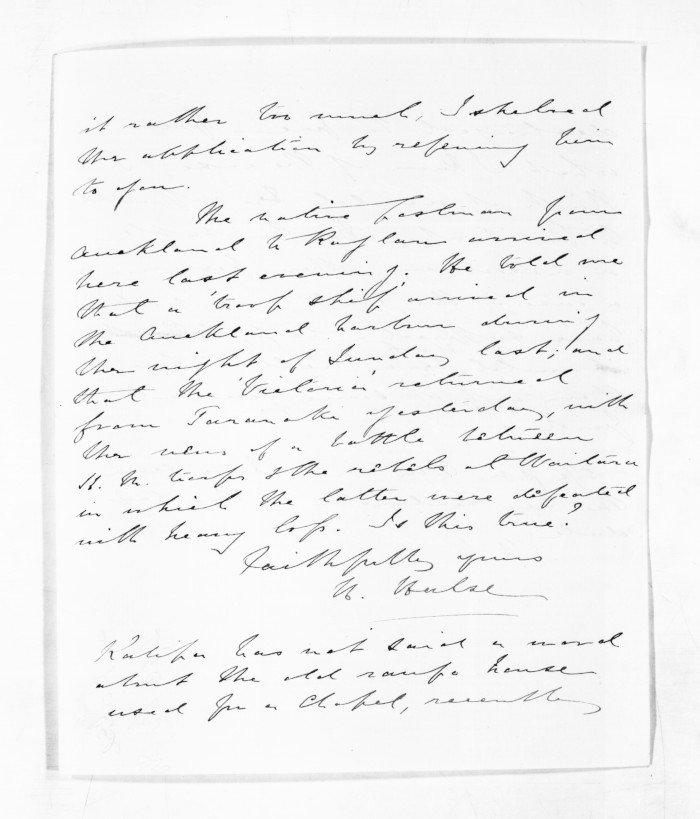 it rather too much, I shelved
the application by referring him
to you.
The native Postman from
Auckland to Raglan arrived
here last evening. He told me
that a 'troop ship' arrived in
the Auckland harbour during
the night of Sunday last; and
that the 'Victoria' returned
from Taranaki yesterday, with
the news of a battle between
H. M. troops & the rebels at Waitara
in which the latter were defeated
with heavy loss. Is this true?
Faithfully yours
H. Halse
has not said a word
about the old raupo house
used for a Chapel, recently